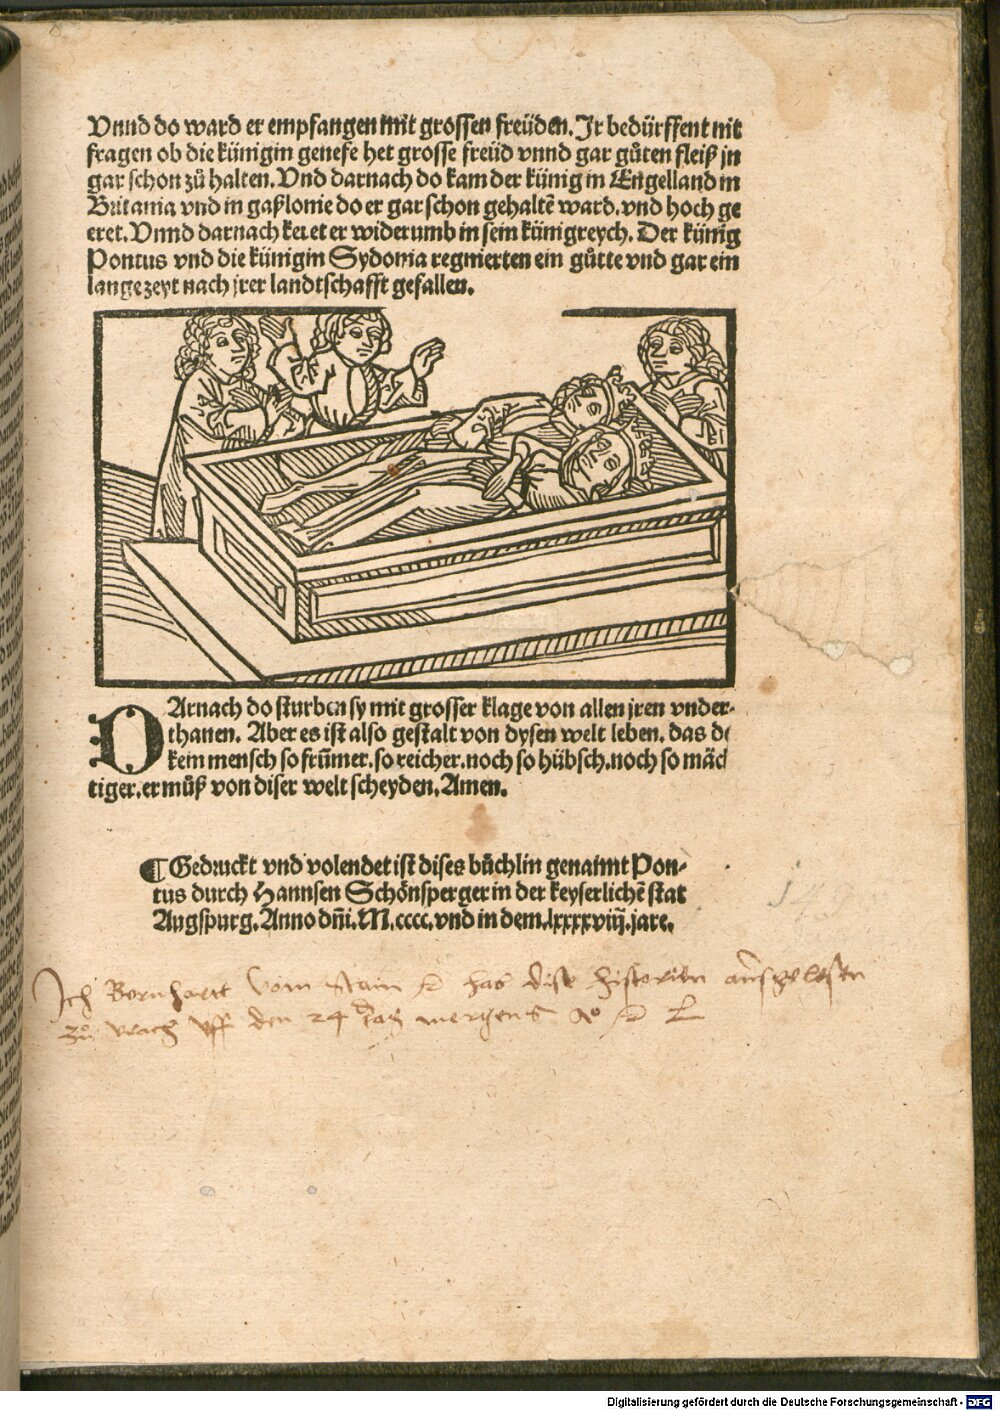 Vnnd do ward er empfangen mit grossen freüden. Ir bedürffent nit
fragen ob die künigin genefe het grosse freüd vnnd gar gůten fleiß jn
gar schon zů halten. Vnd darnach do kam der künig in Engelland in
Britania vnd in gaßlonie do er gar schon gehaltē ward. vnd hoch ge
eret. Vnnd darnach keret er widerumb in sein künigreych. Der künig
Pontus vnd die künigin Sydonia regnierten ein gůtte vnd gar ein
lange zeyt nach jrer landtschafft gefallen.
DArnach do sturben sy mit grosser klage von allen jren vnder-
thanen. Aber es ist also gestalt von dysen welt leben. das
kein mensch so frūmer. so reicher. noch so hübsch. noch so mäc
tiger. er můß von diser welt scheyden. Amen.
¶ Gedruckt vnd volendet ist dises bůchlin genannt Pon-
tus durch Hannsen Schönsperger in der keyserlichē stat
Augspurg. Anno dñi. M. cccc. vnd in dem. lxxxxviij. jare.
Ich Bernhartt vom Stain has dise historien ausgelesen
zů vrach vff den 24 tag mergens
Digitalisierung gefördert durch die Deutsche Forschungsgemeinschaft - DFG